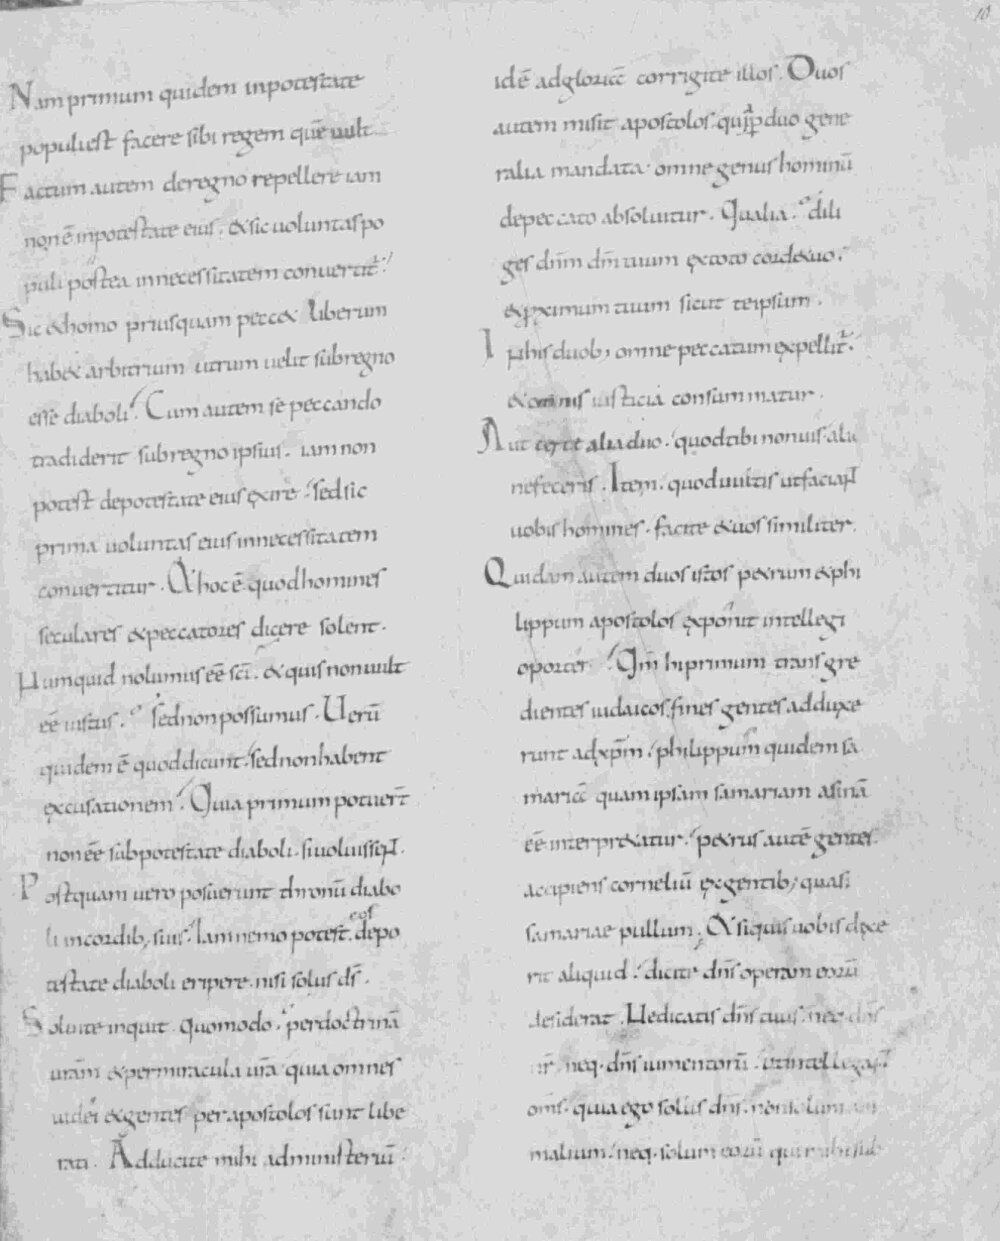 10
Nam primum quidem inpotestate
populi est facere sibi regem quē uult
Factum autem deregno repellere iam
non ē inpotestate eius. & sic uoluntas po
puli postea innecessitatem conuertit̄.
Sic & homo priusquam pecc& liberum
hab& arbitrium utrum uelit subregno
esse diaboli. Cum autem se peccando
tradiderit subregno ipsius. iam non
potest depotestate eius exire. sed sic
prima uoluntas eius innecessitatem
conuertitur. & hoc ē quod homines
seculares & peccatores dicere solent.
Numquid nolumus eē sc̄i. & quis non uult
eē iustus. sed non possumus. Uerū
quidem ē quod dicunt. sed non habent
excusationem. Quia primum potuer̄t
non eē sub potestate diaboli. si uoluissent.
Postquam uero posuerunt thronū diabo
li incordib; suis. Iam nemo potest eos depo
testate diaboli eripere. nisi solus d̄s.
Soluite inquit. quomodo. per doctrinā
ur̄am & per miracula ur̄a. quia omnes
iudei & gentes per apostolos sunt libe
rati. Adducite mihi ad ministeriū.
id ē ad gloriā corrigite illos. Duos
autem misit apostolos. quia duo gene
ralia mandata. omne genus hominū
depeccato absoluitur. Qualia. dili
ges dn̄m dm̄ tuum ex toto corde tuo.
& proximum tuum sicut te ipsum.
In his duob; omne peccatum expellit̄.
& omnis iusticia consummatur.
Aut certe alia duo. quod tibi non uis alii
ne feceris. Item. quod uultis ut faciant
uobis homines. facite & uos similiter.
Quidam autem duos istos petrum & phi
lippum apostolos exponit intellegi
oportet. Qm̄ hi primum transgre
dientes iudaicos fines gentes adduxe
runt ad xp̄m. philippum quidem sa
mariā quam ipsam samariam asinā
eē interpr&atur. petrus autē gentes.
accipiens corneliū ex gentib; quasi
samariae pullum. & si quis uobis dixe
rit aliquid. dicite dn̄s operam eorū
desiderat. Ne dicatis dn̄s tuus. nec dn̄s
nr̄. neq. dn̄s iumentorū. ut intellegant
om̄s. quia ego solus dn̄s. non solum ani
malium. neq. solum eorū qui mihi sub